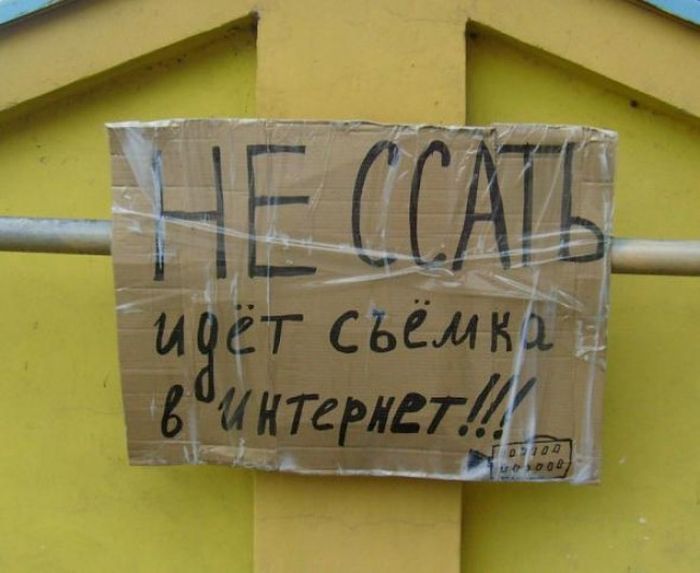 НЕ ССАТЬ
идёт съёмка
в интернет!!!